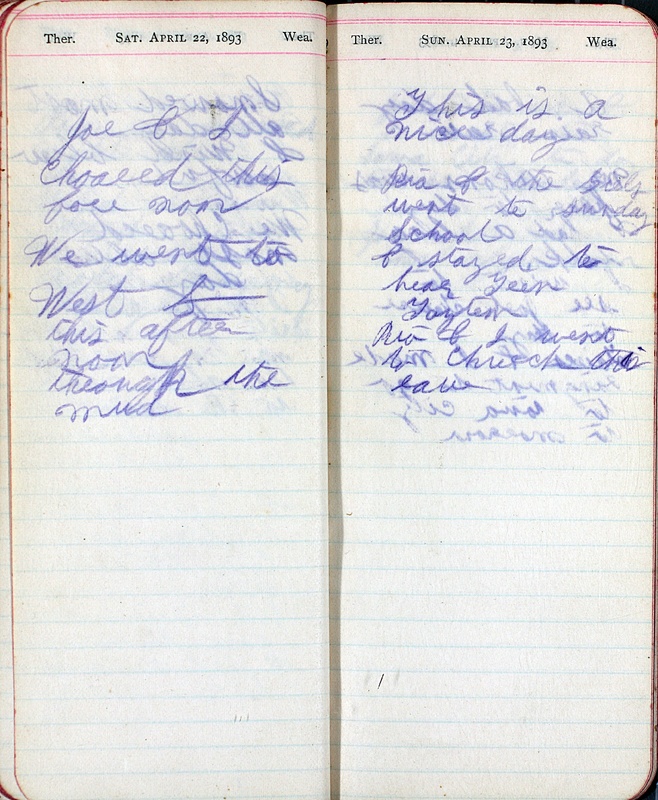 Ther. SAT. APRIL 22, 1893 Wea.
Joe & I
this
fore noon
We went to
West
this after
noon
through the
mud
Ther. SUN. APRIL 23, 1893 Wea.
This is a
nice day
Ria & the girls
went to sunday
school
& stayed to
hear

Ria & I went
to Church this
eave